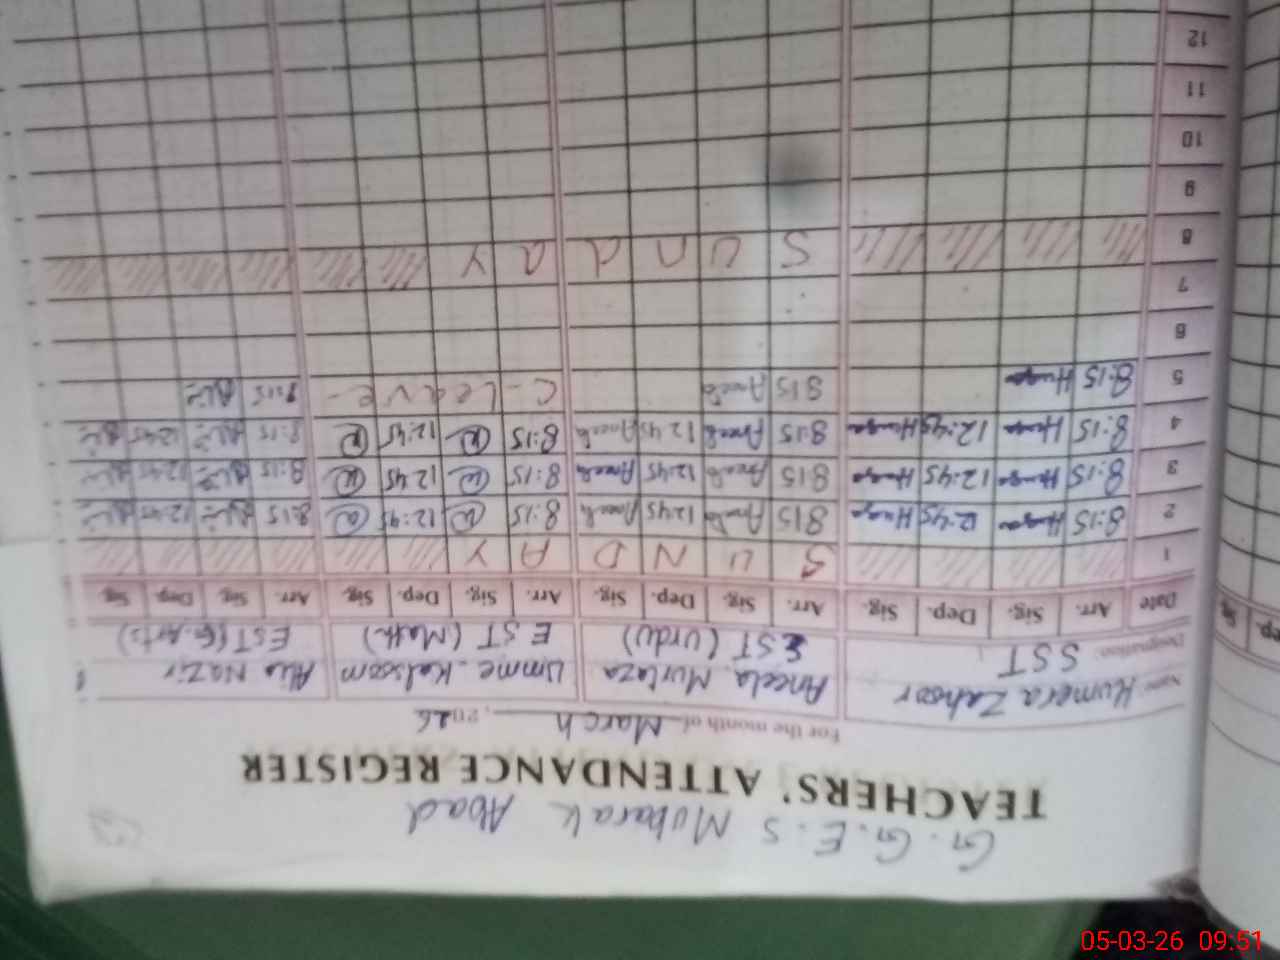 G. G. E. S Mubarak Abad
TEACHERS' ATTENDANCE REGISTER
For the month of March, 2026
Name Humera Zahoor Aneela Murtaza Umme Kalsoom Alia Nazir
Designation: SST EST (Urdu) EST (Math) EST (G. Arts)
Date Arr. Sig. Dep. Sig. Arr. Sig. Dep. Sig. Arr. Sig. Dep. Sig. Arr. Sig. Dep. Sig.
1 S U N D A Y
2 8:15 12:45 8:15 Aneela 12:45 Aneela 8:15 12:45 8:15 12:45
3 8:15 12:45 8:15 Aneela 12:45 Aneela 8:15 12:45 8:15 12:45
4 8:15 12:45 8:15 Aneela 12:45 Aneela 8:15 12:45 8:15 12:45
5 8:15 8:15 Aneela C-Leave- 8:15
6
7
8 S u n d a y
9
10
11
12
05-03-26 09:51